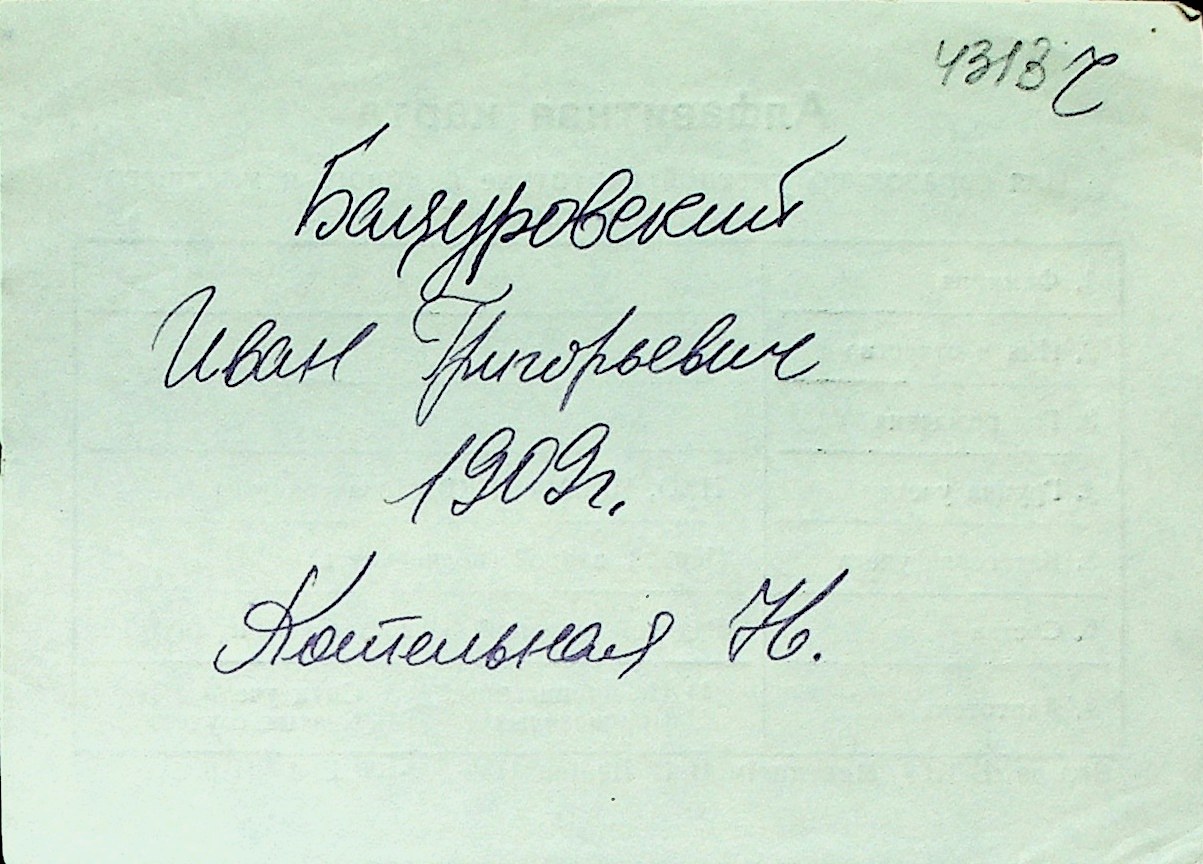 4313 С
Бацуровский
Иван Григорьевич
1909г.
Котельная Н.